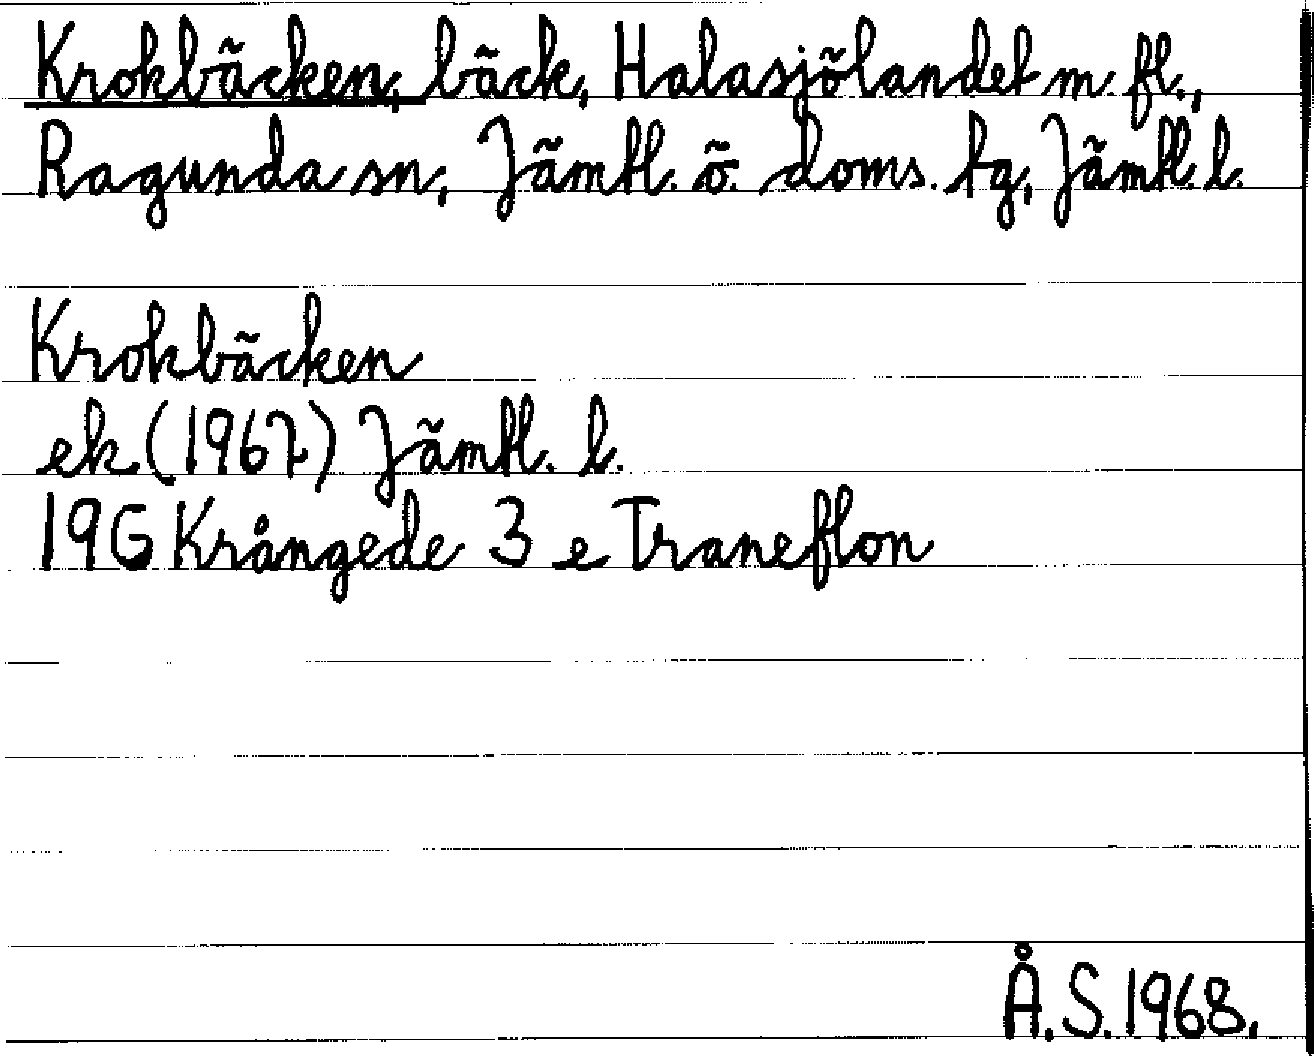 Krokbäcken, bäck, Halasjölandet m. fl.,
Ragunda sn, Jämtl. ö. doms. tg, Jämtl. l.
Krokbäcken
ek (1967) Jämtl. l.
19G Krångede 3 e Traneflon
Å.S. 1968.